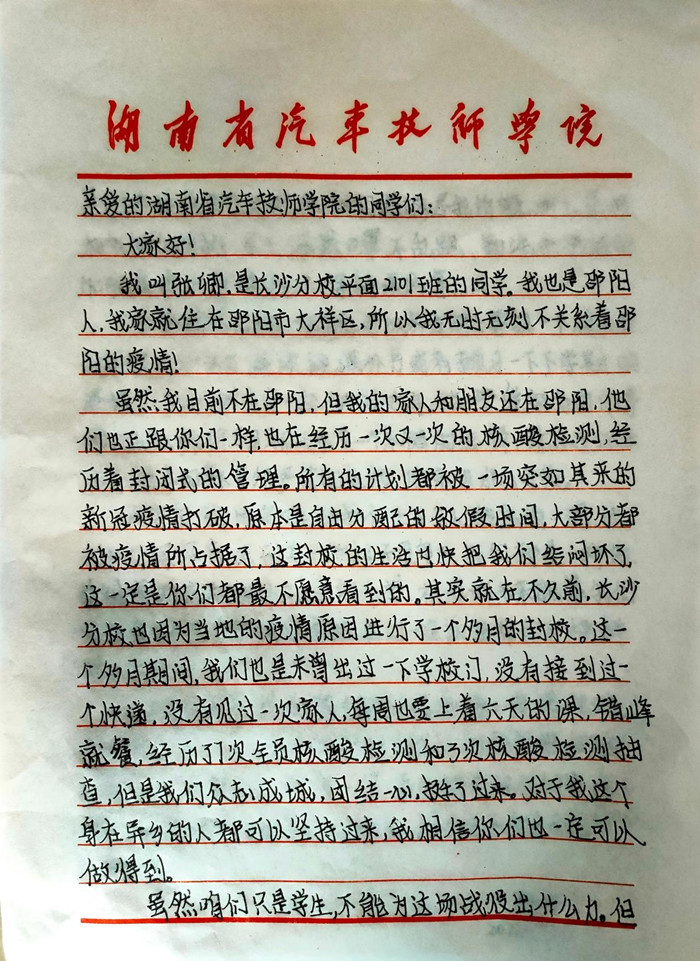 湖南省汽车技师学院
亲爱的湖南省汽车技师学院的同学们：
大家好！
我叫张卿，是长沙分校平面2101班的同学。我也是邵阳
人，我家就住在邵阳市大祥区，所以我无时无刻不关系着邵
阳的疫情！
虽然我目前不在邵阳，但我的家人和朋友还在邵阳，他
们也正跟你们一样，也在经历一次又一次的核酸检测，经
历着封闭式的管理。所有的计划都被一场突如其来的
新冠疫情打破，原本是自由分配的放假时间，大部分都
被疫情所占据了，这封校的生活也快把我们给闷坏了，
这一定是你们都最不愿意看到的。其实就在不久前，长沙
分校也因为当地的疫情原因进行了一个多月的封校。这一
个多月期间，我们也是未曾出过一下学校门，没有接到过一
个快递，没有见过一次家人，每周也要上着六天的课，错峰
就餐，经历了7次全员核酸检测和3次核酸检测抽
查，但是我们众志成城，团结一心，挺了过来。对于我这个
身在异乡的人都可以坚持过来，我相信你们也一定可以
做得到。
虽然咱们只是学生，不能为这场战役出什么力。但